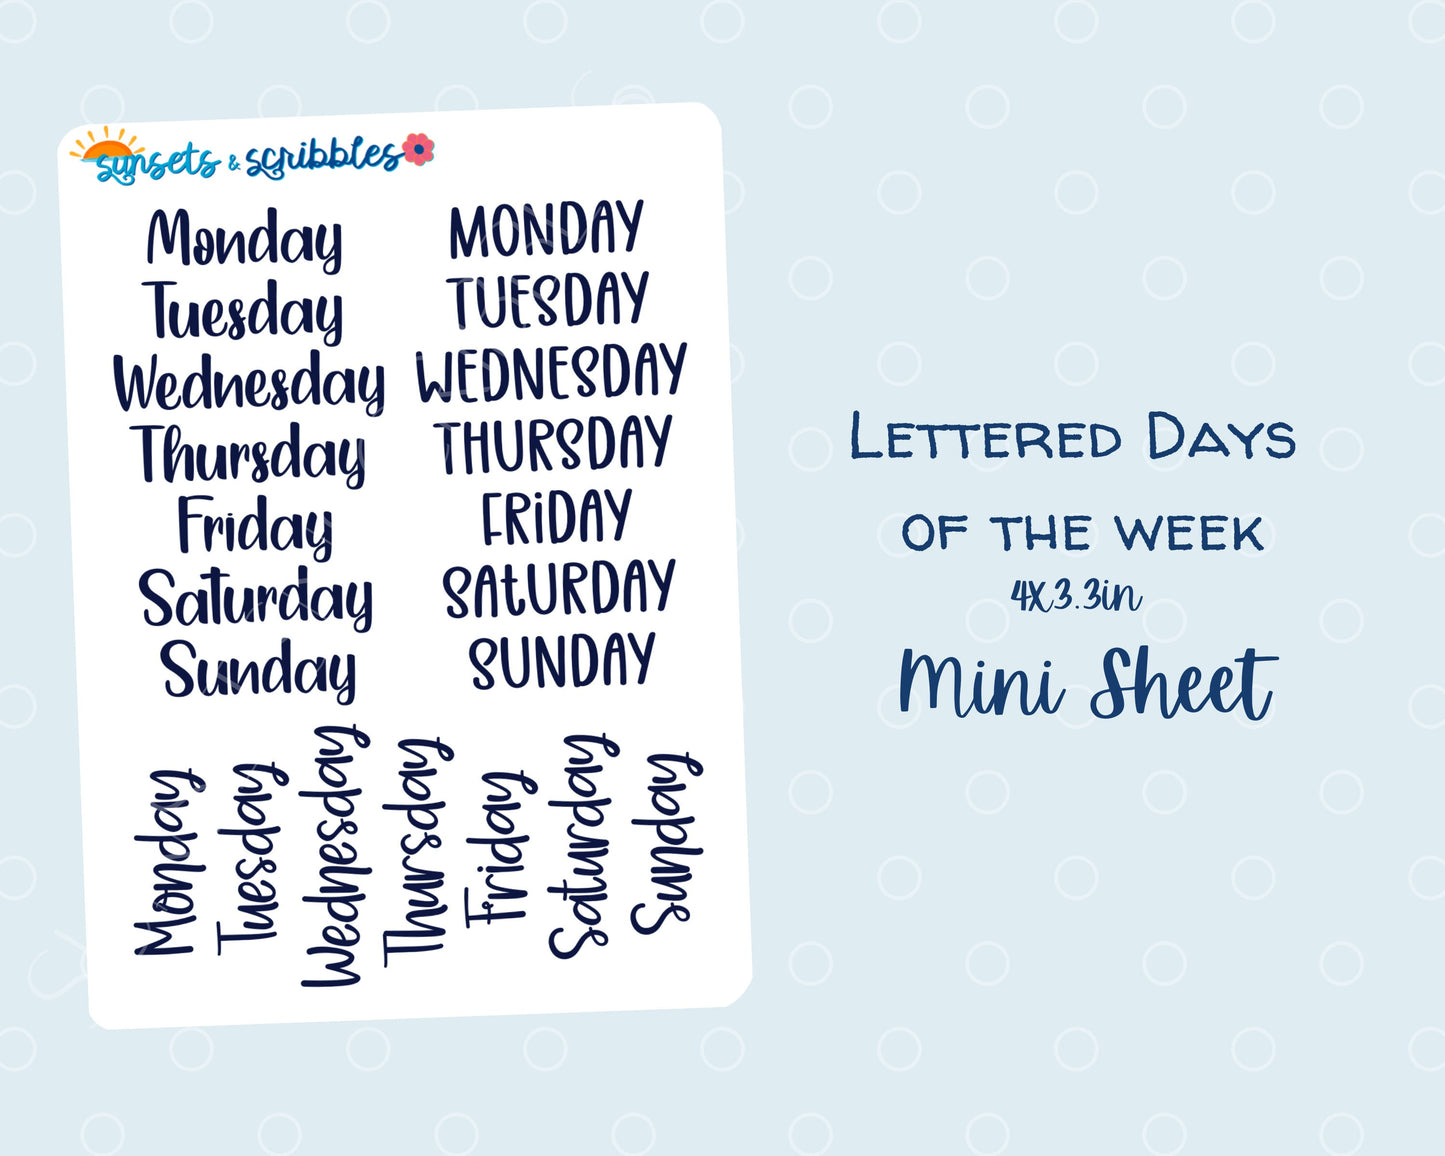 sunsets & scribbles
Monday
Tuesday
Wednesday
Thursday
Friday
Saturday
Sunday
MONDAY
TUESDAY
WEDNESDAY
THURSDAY
FRiDAY
SAtURDAY
SUNDAY
Monday
Tuesday
Wednesday
Thursday
Friday
Saturday
Sunday
Lettered Days
of the week
4x3.3in
Mini Sheet